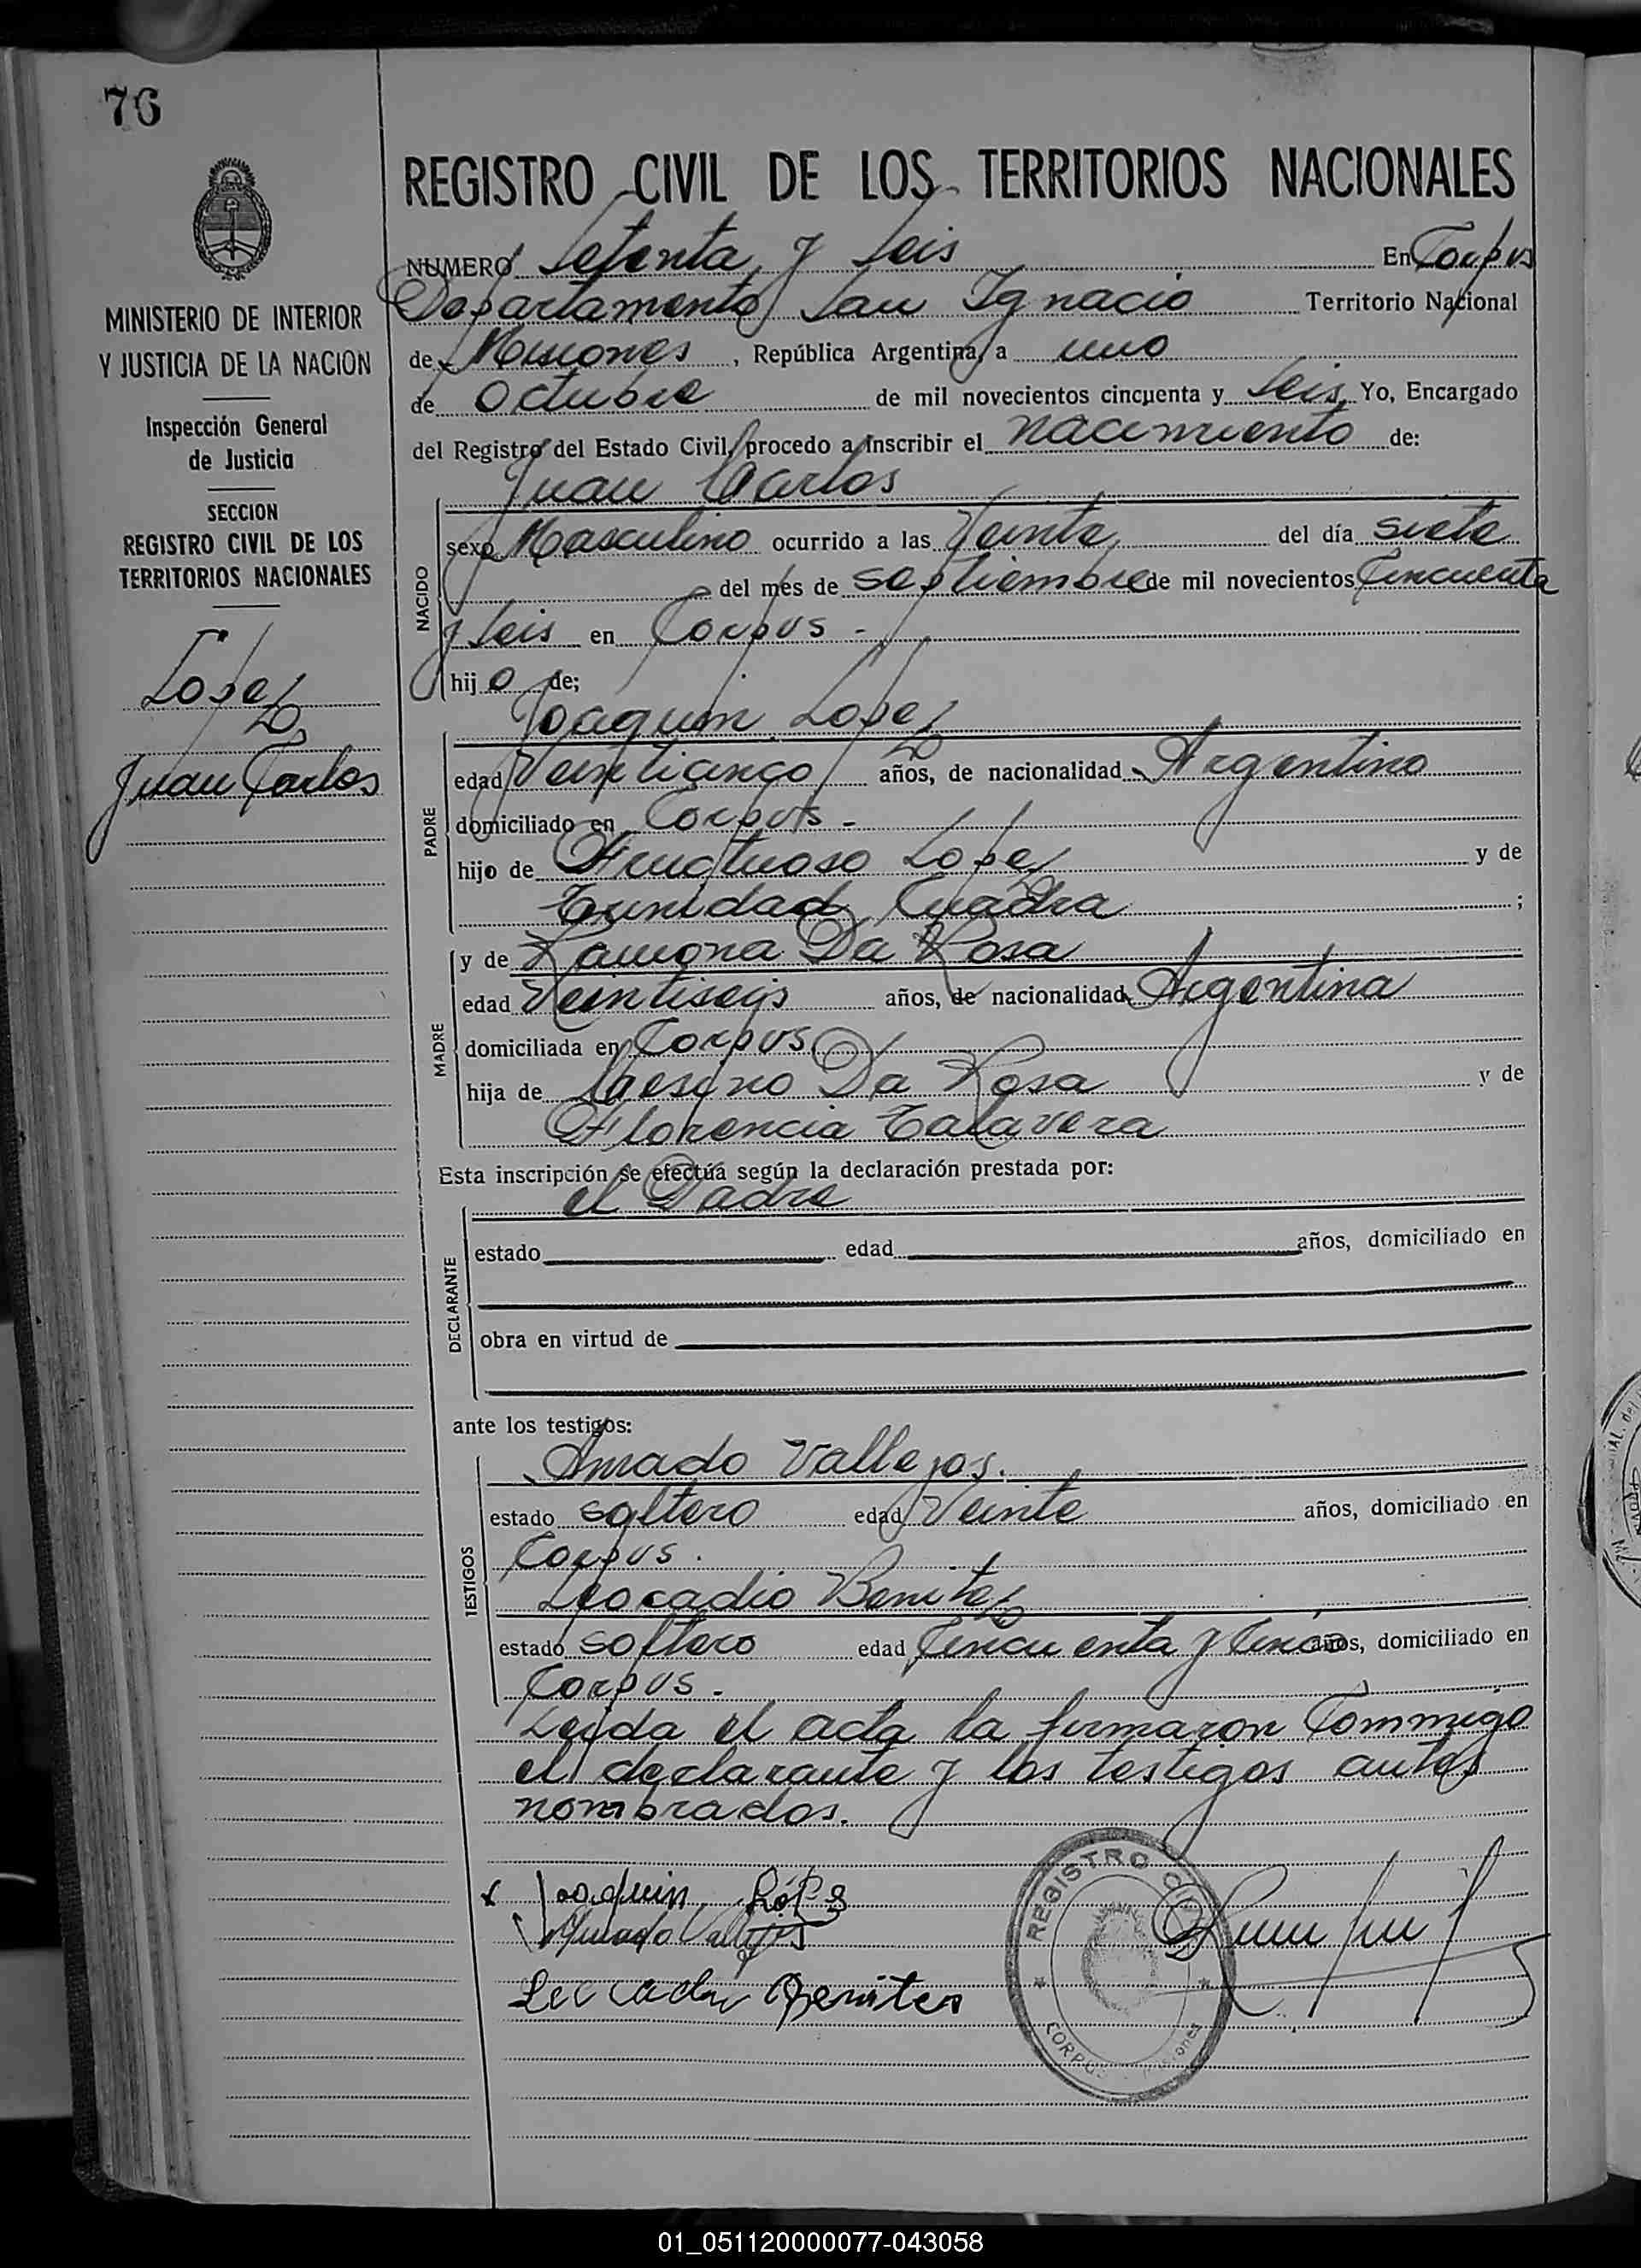 76
REGISTRO CIVIL DE LOS TERRITORIOS NACIONALES
MINISTERIO DE INTERIOR
Y JUSTICIA DE LA NACION
Inspección General
de Justicia
SECCION
REGISTRO CIVIL DE LOS
TERRITORIOS NACIONALES
Lopez
Juan Carlos
NUMERO Setenta y Seis En Corpus
Departamento San Ignacio Territorio Nacional
de Misiones, República Argentina, a uno
de Octubre de mil novecientos cincuenta y Seis, Yo, Encargado
del Registro del Estado Civil, procedo a inscribir el nacimiento de:
Juan Carlos
NACIDO
sexo Masculino ocurrido a las Veinte del día siete
del mes de septiembre de mil novecientos Cincuenta
y Seis en Corpus -
hijo de;
Joaquin Lopez
PADRE
edad Veinticinco años, de nacionalidad Argentino
domiciliado en Corpus -
hijo de Fructuoso Lopez y de
Trinidad Cuadra ;
MADRE
y de Ramona Da Rosa
edad Veintiseis años, de nacionalidad Argentina
domiciliada en Corpus
hija de Da Rosa y de
Florencia Talavera
Esta inscripción se efectúa según la declaración prestada por:
el Padre
DECLARANTE
estado edad años, domiciliado en
obra en virtud de
ante los testigos:
TESTIGOS
Amado Vallejos.
estado soltero edad Veinte años, domiciliado en
Corpus.
Leocadio Benitez
estado soltero edad Cincuenta y Cinco años, domiciliado en
Corpus -
Leida el acta la firmaron Commigo
el declarante y los testigos antes
nombrados.
x Joaquin Lópes
Amado Vallejos
Leocadio Benites
REGISTRO CIVIL
CORPUS Misiones
01_051120000077-043058